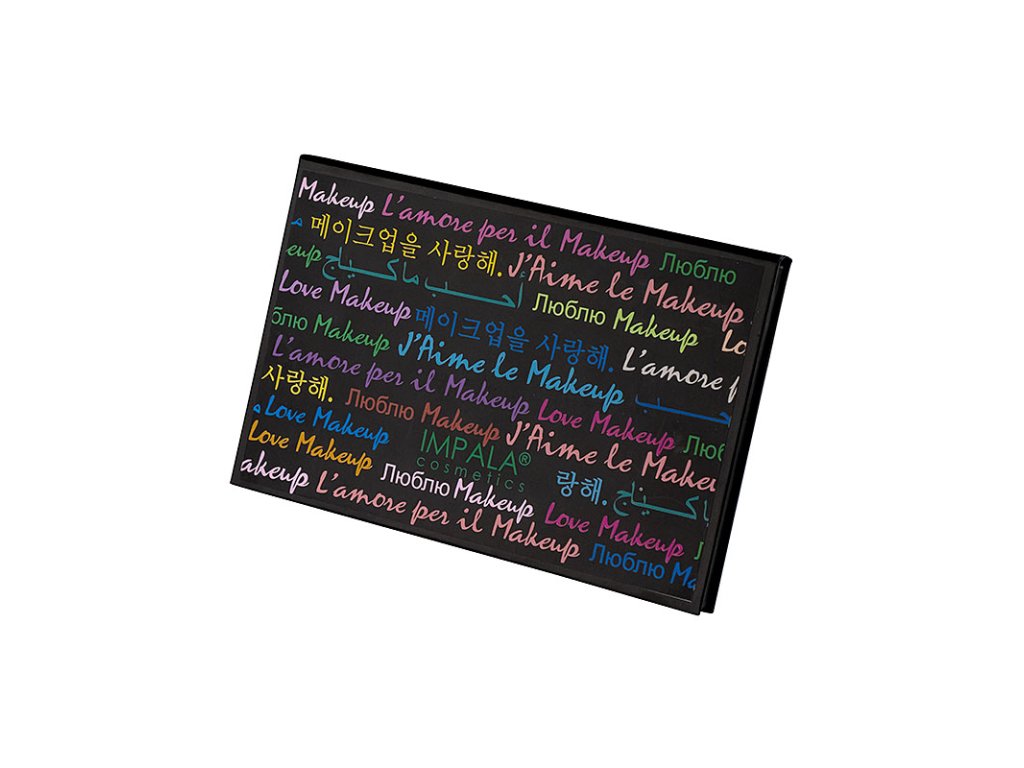 Makeup L'amore per il Makeup Люблю
메이크업을 사랑해. J'Aime le Makeup
eup أحب ماكياج Люблю Makeup Lo
Love Makeup 메이크업을 사랑해. L'amore p
блю Makeup J'Aime le Makeup حب
L'amore per il Makeup Love Makeup Люб
사랑해. Люблю Makeup J'Aime le Makeu
Love Makeup IMPALA®
cosmetics
Love Makeup Люблю Makeup 랑해. ماكياج
akeup L'amore per il Makeup Love Makeup
Люблю Ma